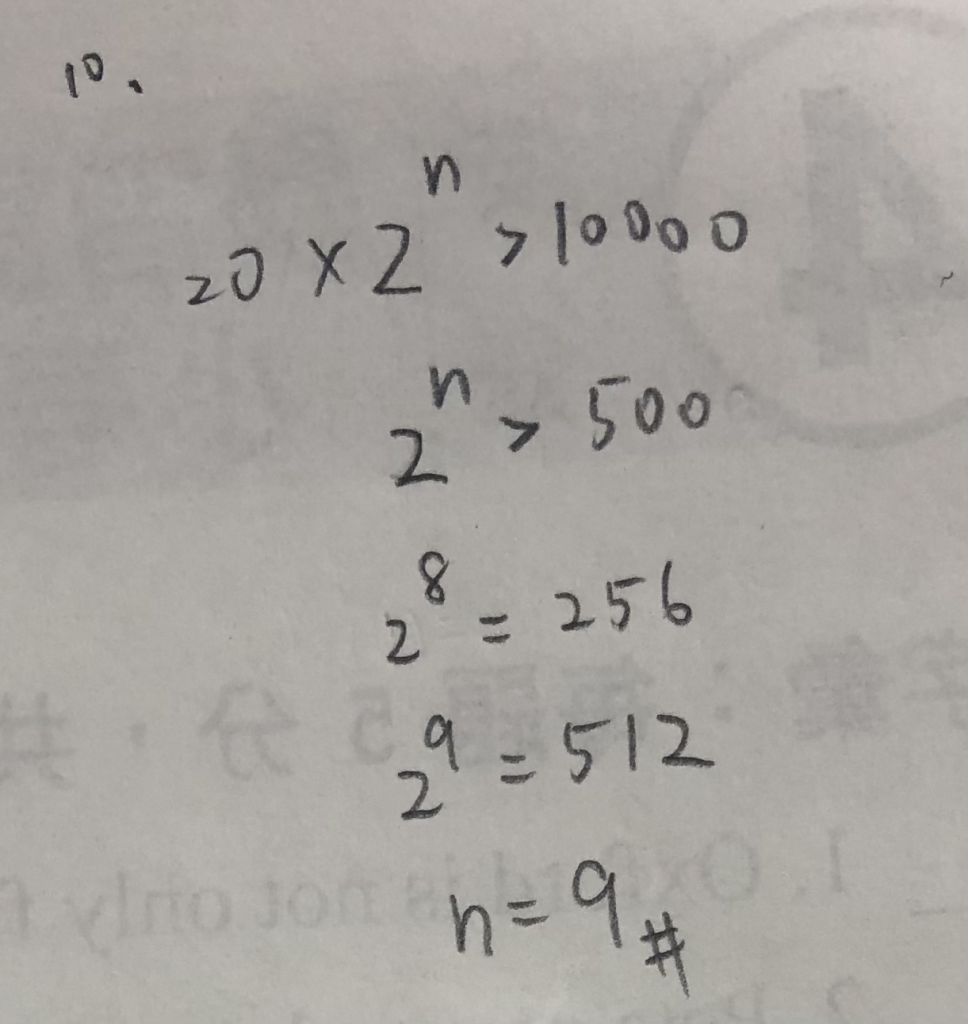 10.
20 × 2ⁿ > 10000
2ⁿ > 500
2⁸ = 256
2⁹ = 512
n = 9 #